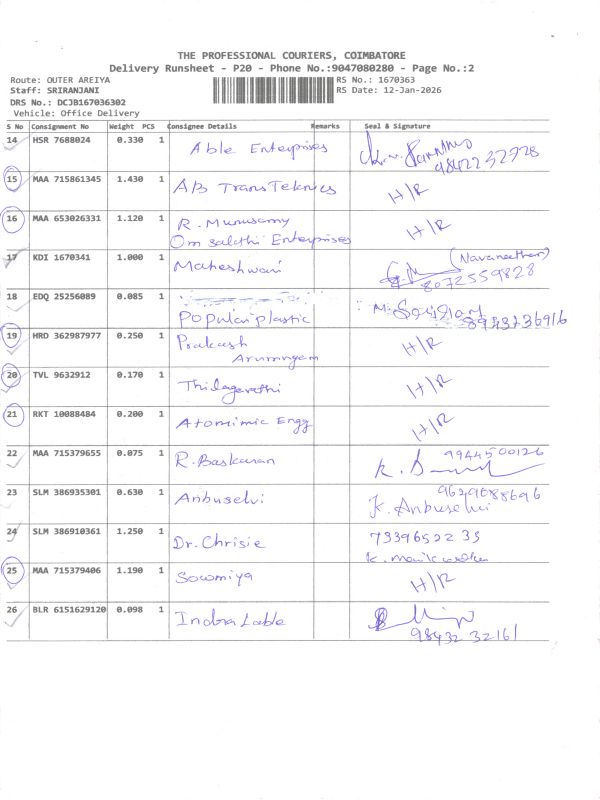 THE PROFESSIONAL COURIERS, COIMBATORE
Delivery Runsheet - P20 - Phone No.:9047080280 - Page No.:2
Route: OUTER AREIYA
RS No.: 1670363
Staff: SRIRANJANI
RS Date: 12-Jan-2026
DRS No.: DCJB167036302
Vehicle: Office Delivery
S No Consignment No Weight PCS Consignee Details Remarks Seal & Signature
14 HSR 7688024 0.330 1 Able Enterprises
9842232728
15 MAA 715861345 1.430 1 AB TransTeknics H/R
16 MAA 653026331 1.120 1 R. Murusamy H/R
Om sakthi Enterprises
17 KDI 1670341 1.000 1 Maheshwari (Navaneethan)
8072559828
18 EDQ 25256089 0.085 1 Popular plastic
8943736916
19 HRD 362987977 0.250 1 Prakash H/R
Arumugam
20 TVL 9632912 0.170 1 Thilagavathi H/R
21 RKT 10088484 0.200 1 Atomimic Engg H/R
22 MAA 715379655 0.075 1 R. Baskaran 9944500126
23 SLM 386935301 0.630 1 Anbuselvi 9629688696
K. Anbuselvi
24 SLM 386910361 1.250 1 Dr. Chrisie 7339652235
25 MAA 715379406 1.190 1 Sowmiya H/R
26 BLR 6151629120 0.098 1 Indra Lable
98432 32161